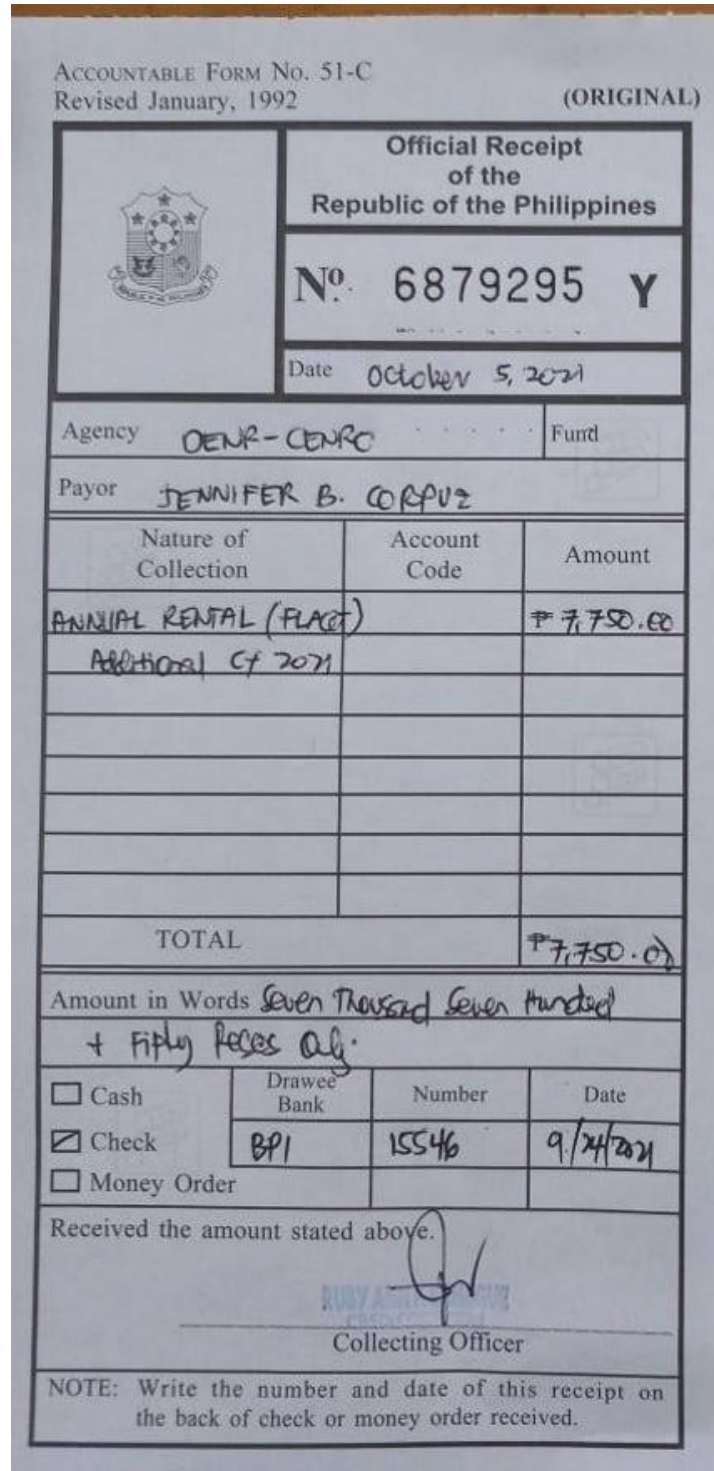 ACCOUNTABLE FORM NO. 51-C
Revised January, 1992
(ORIGINAL)
Official Receipt
of the
Republic of the Philippines
Nº. 6879295 Y
Date October 5, 2021
Agency DENR-CENRO
Fund
Payor JENNIFER B. CORPUZ
Nature of Collection
Account Code
Amount
ANNUAL RENTAL (FLAgT) ₱ 7,750.00
Additional CY 2021
TOTAL ₱7,750.00
Amount in Words Seven Thousand Seven Hundred
+ Fifty Pesos only.
Cash
Drawee Bank
Number
Date
Check BPI 15546 9/24/2021
Money Order
Received the amount stated above.
RUBY
Collecting Officer
NOTE: Write the number and date of this receipt on
the back of check or money order received.